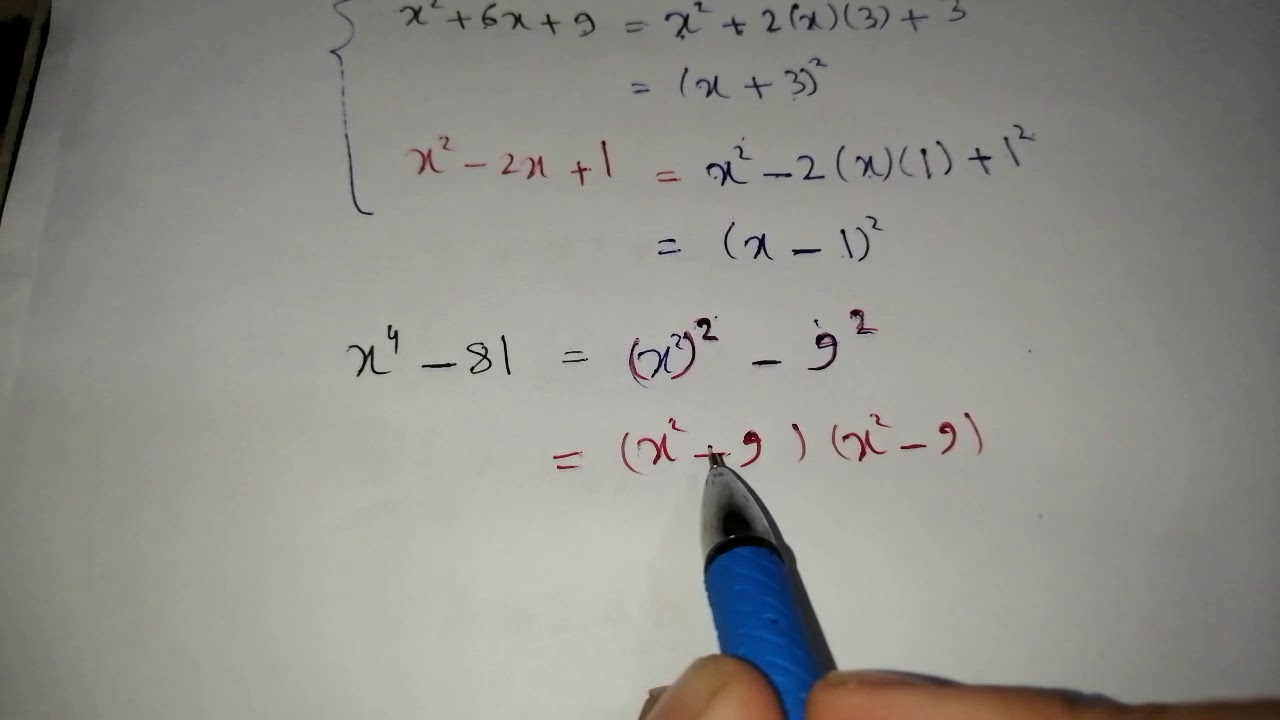 x² + 6x + 9 = x² + 2(x)(3) + 3
= (x + 3)²
x² - 2x + 1 = x² - 2(x)(1) + 1²
= (x - 1)²
x⁴ - 81 = (x²)² - 9²
= (x² + 9) (x² - 9)